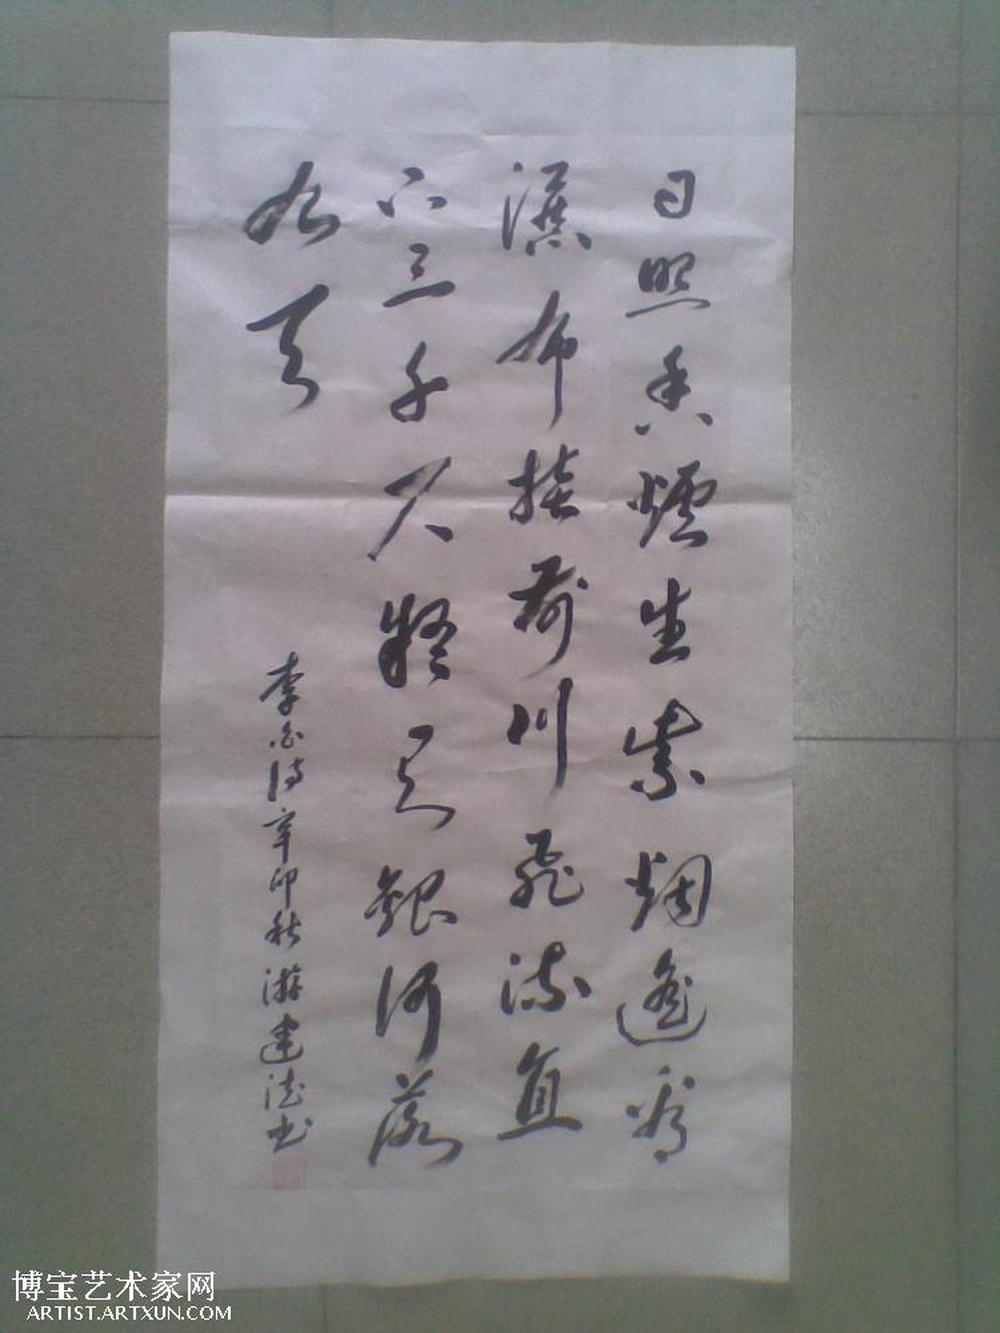 日照香煙生紫烟遙看
瀑布掛前川飛流直
下三千尺疑是銀河落
九天
李白詩辛卯秋游建德书
博宝艺术家网
ARTIST.ARTXUN.COM